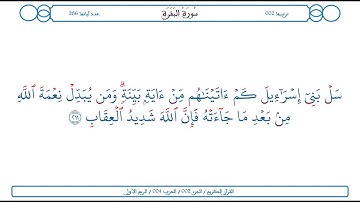 ترتيبها 002
سُورَةُ الْبَقَرَةِ
عدد آياتها 286
سَلْ بَنِىٓ إِسْرَٰٓءِيلَ كَمْ ءَاتَيْنَٰهُم مِّنْ ءَايَةٍۭ بَيِّنَةٍۢ ۗ وَمَن يُبَدِّلْ نِعْمَةَ ٱللَّهِ
مِنۢ بَعْدِ مَا جَآءَتْهُ فَإِنَّ ٱللَّهَ شَدِيدُ ٱلْعِقَابِ ﴿٢١١﴾
القرآن الكريم / الجزء 002 / الحزب 004 / الربع الأول